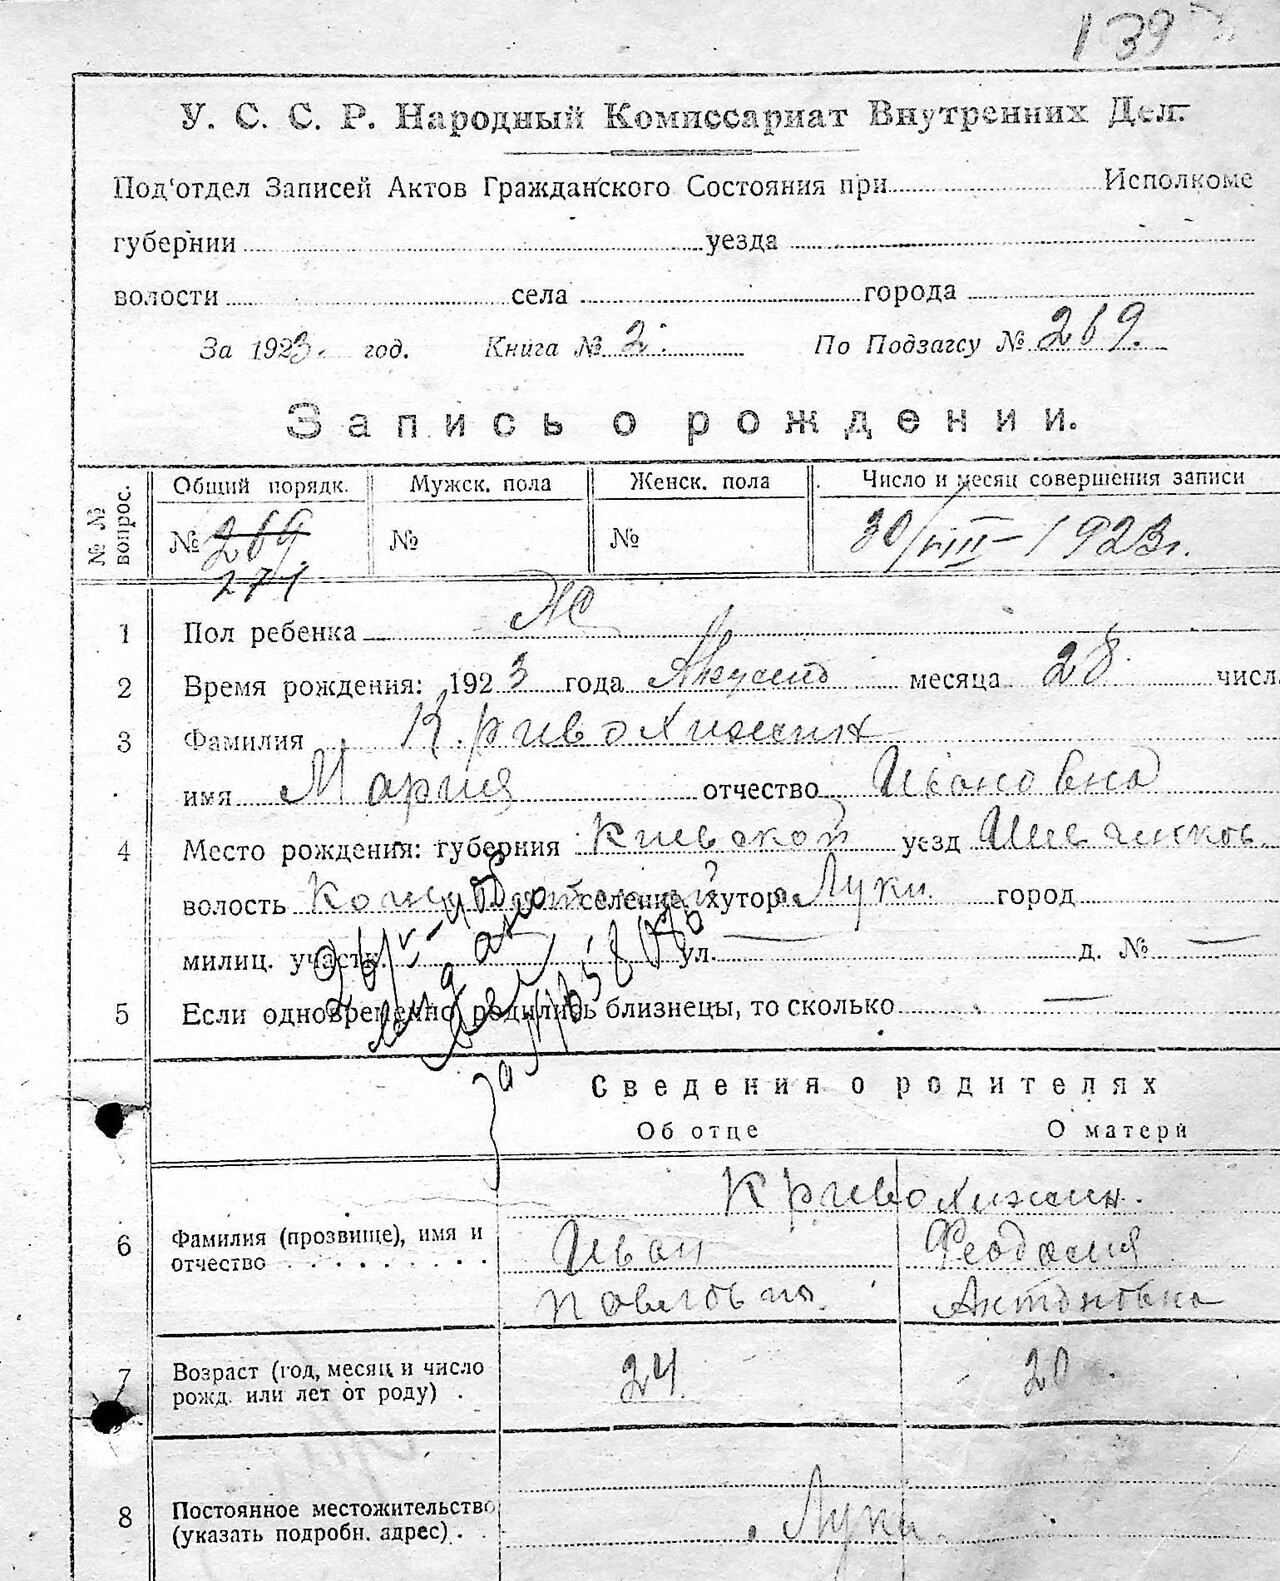 139
У. С. С. Р. Народный Комиссариат Внутренних Дел.
Под'отдел Записей Актов Гражданского Состояния при Исполкоме
губернии уезда
волости села города
За 1923. год. Книга № 2. По Подзагсу № 269.
Запись о рождении.
№ № вопрос. Общий порядк. Мужск. пола Женск. пола Число и месяц совершения записи
№ 269 № № 30/VIII–1923г.
271
1 Пол ребенка Ж
2 Время рождения: 1923 года Август месяца 28 числ
3 Фамилия Кривохижин
имя Мария отчество Ивановна
4 Место рождения: губерния Киевской уезд Шевченков.
волость селение, хутор Луки город
милиц. участк. ул. — д. № —
5 Если одновременно родились близнецы, то сколько —
Сведения о родителях
Об отце О матери
Кривохижин.
6 Фамилия (прозвище), имя и отчество Иван Феодосия
Павлович Антоновна
7 Возраст (год, месяц и число рожд. или лет от роду) . 24. 20
8 Постоянное местожительство (указать подробн. адрес) . . Луки